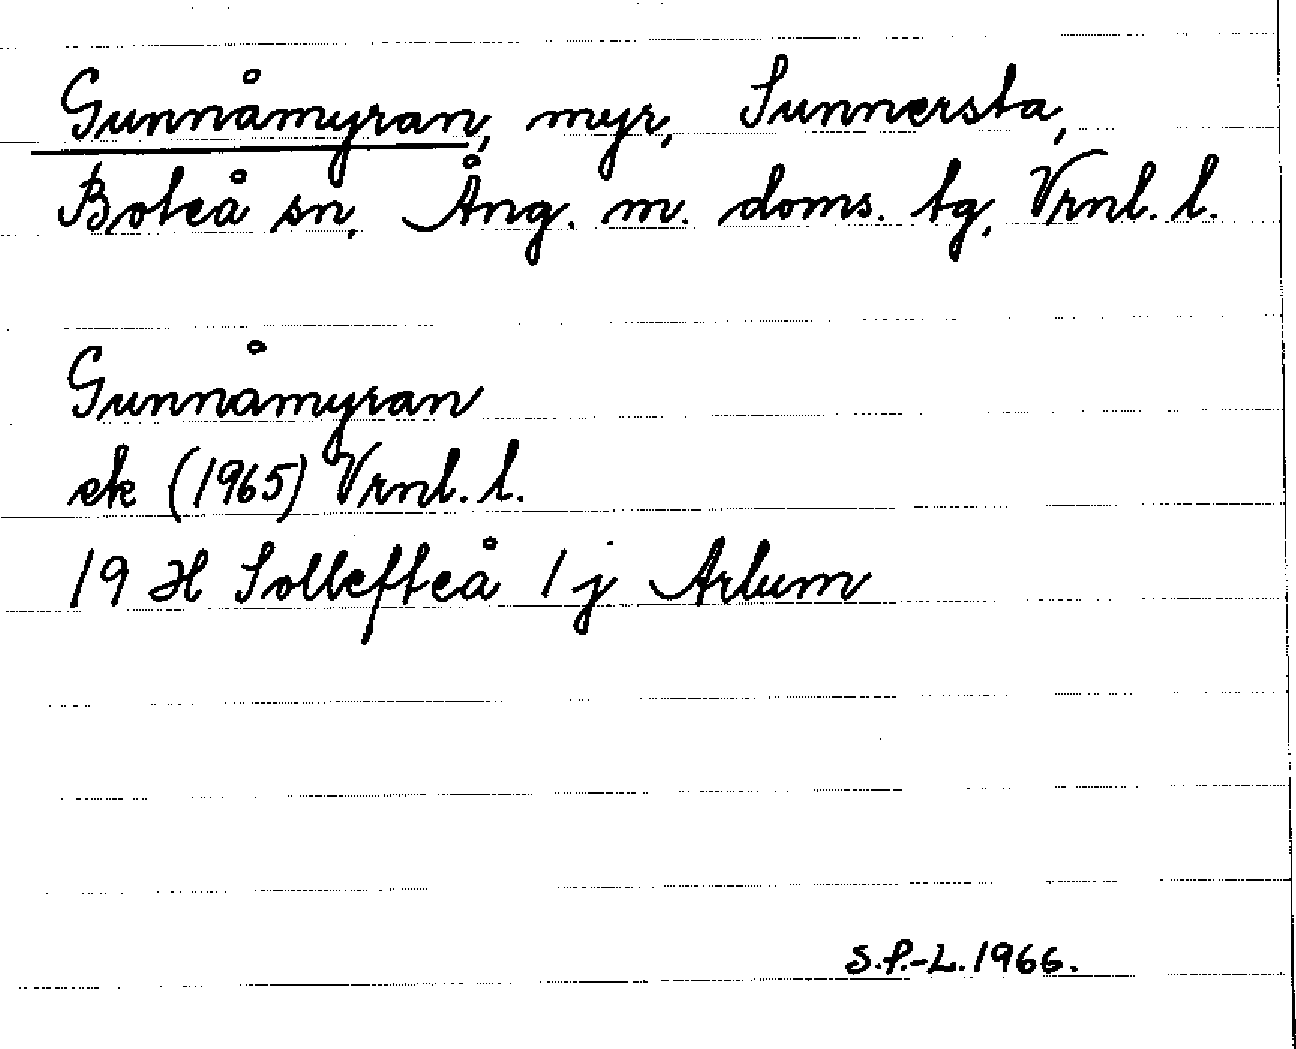 Gunnåmyran, myr, Sunnersta,
Boteå sn. Ång. m. doms. tg. Vrnl. l.
Gunnåmyran
ek (1965) Vrnl. l.
19 H Sollefteå 1 j Arlum
S.P.-L. 1966.